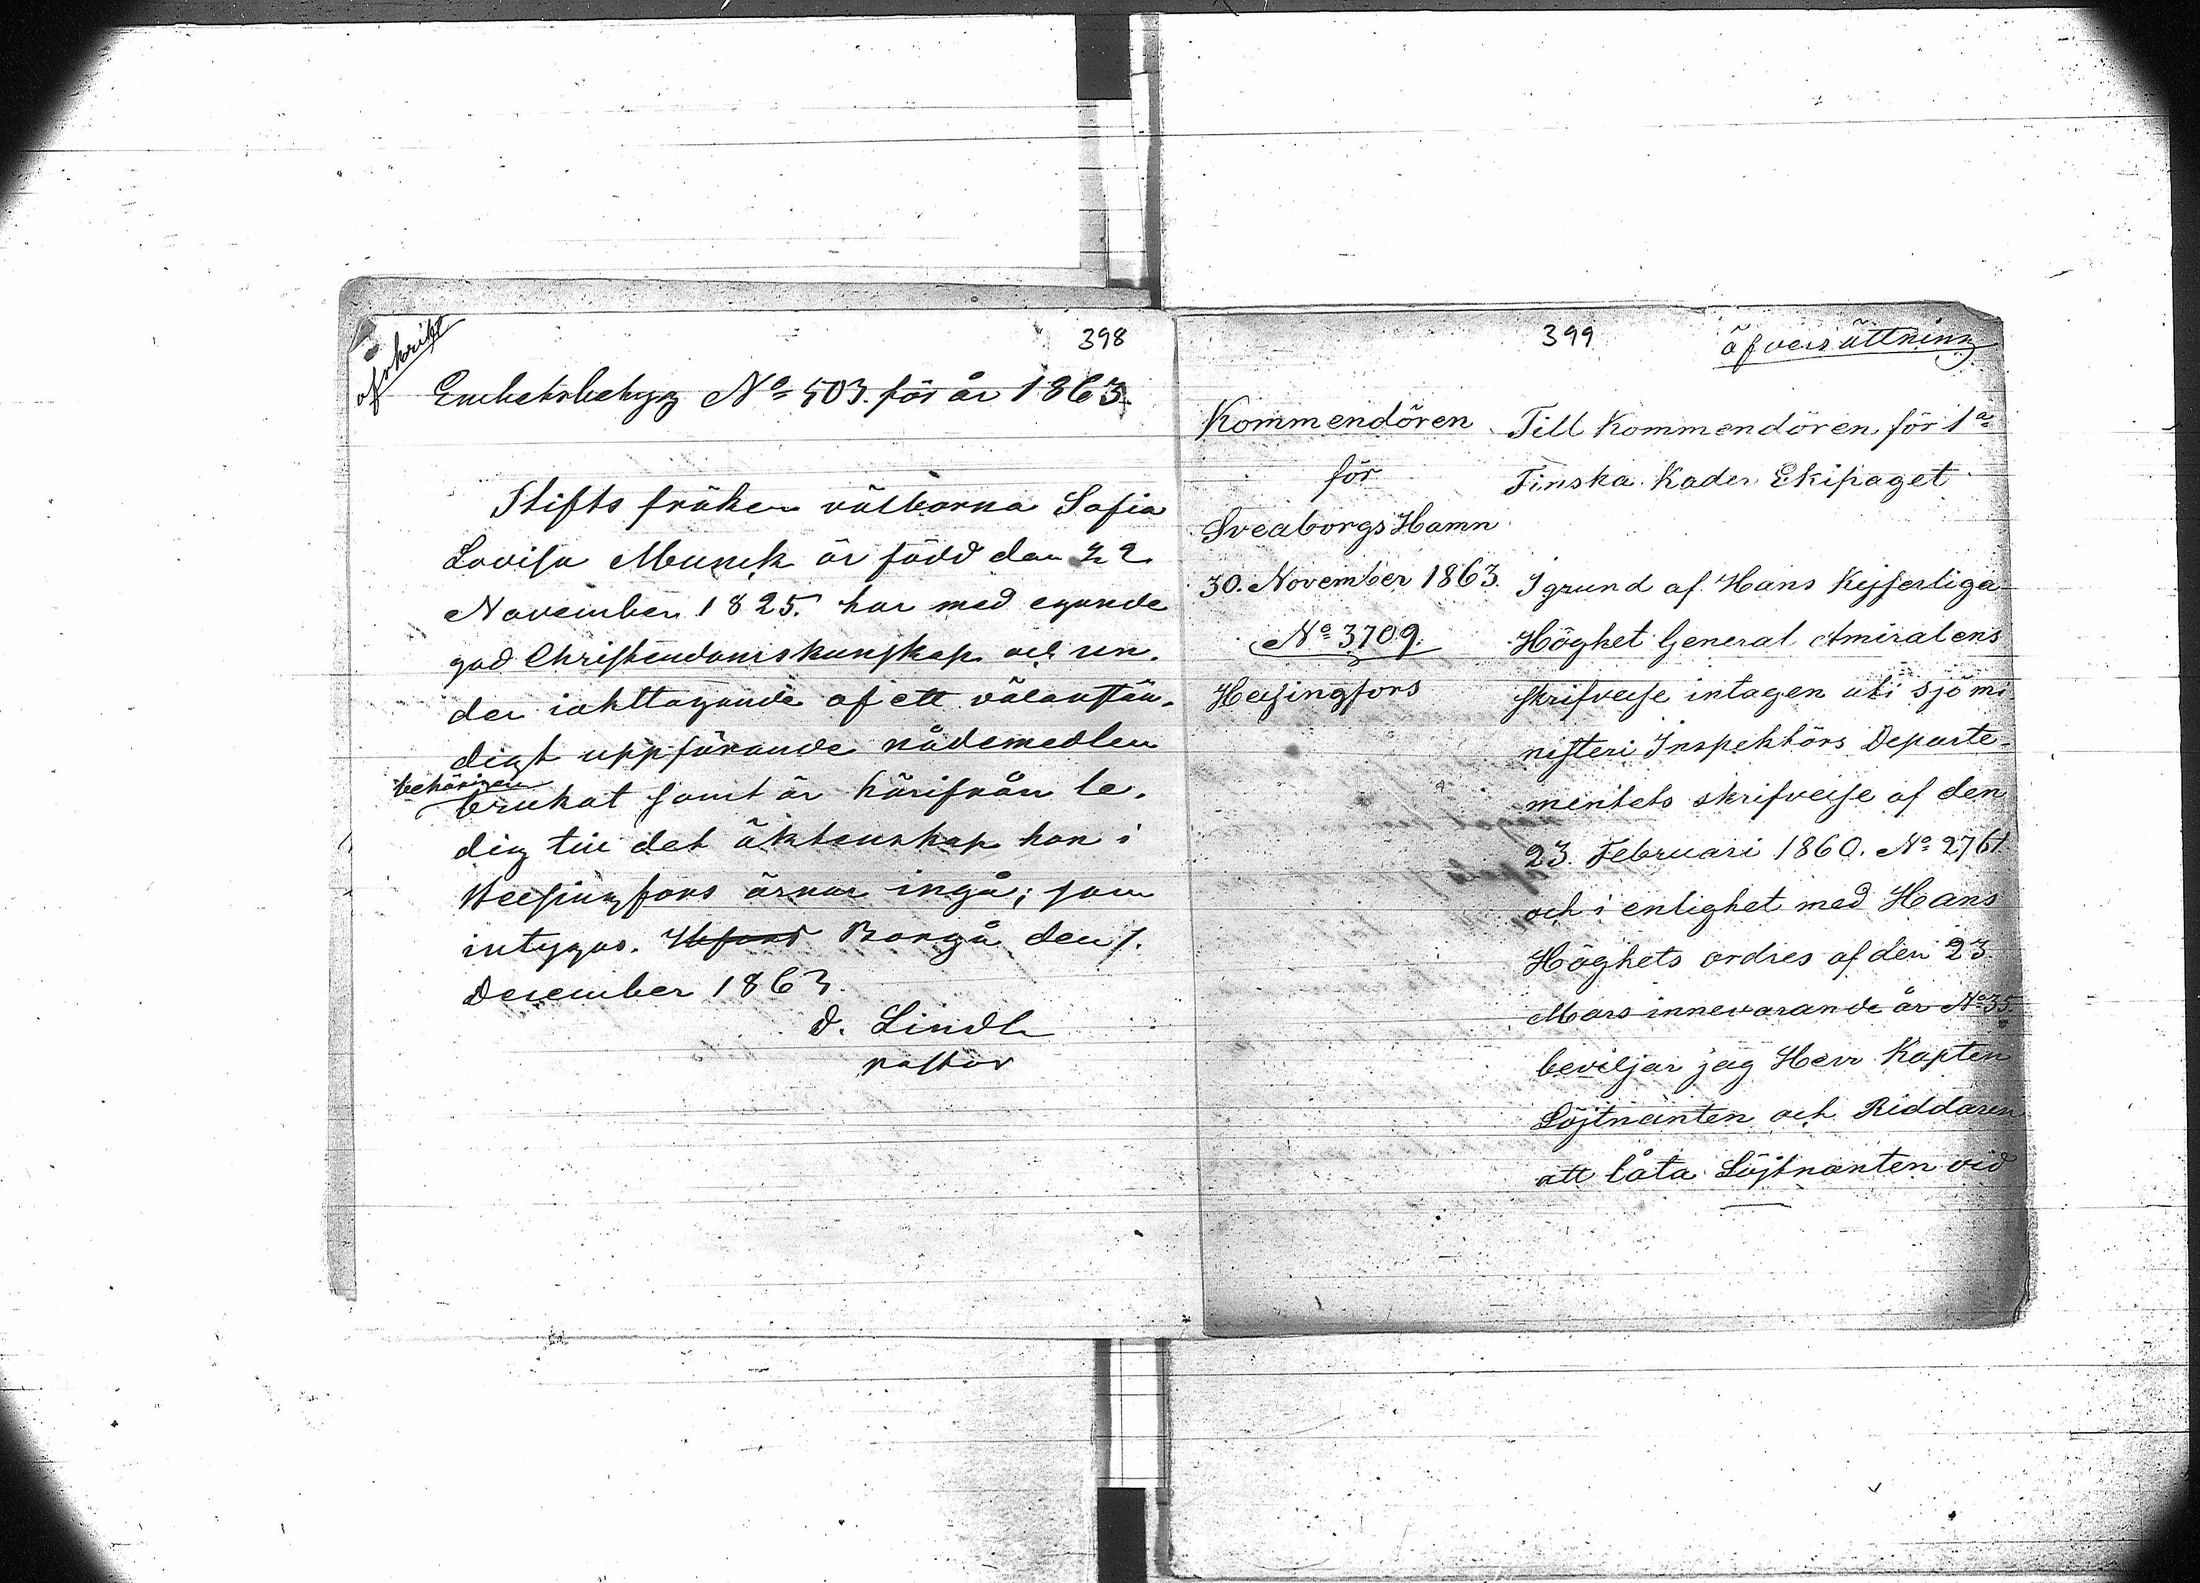 afskrift
398
Embetsbetyg No 503. för år 1863.
Stifts fröken välborna Sofia
Lovisa Munck är född den 22
November 1825. har med egande
god Christendomskunskap och un-
der iakttagande af ett välanstän-
digt uppförande nådemedlen
behörigen
brukat samt är härifrån le-
dig till det äktenskap hon i
Helsingfors ärnar ingå; som
intygas. Borgå den 1.
December 1863.
D. Lindh
pastor
399
öfversättning
Kommendören
för
Sveaborgs Hamn
30. November 1863.
No 3709.
Helsingfors
Till Kommendören för 1a
Finska Kader Ekipaget
I grund af Hans Kejserliga
Höghet General Amiralens
skrifvelse intagen uti sjömi
nisteri Inspektörs Departe-
mentets skrifvelse af den
23. Februari 1860. No 2761
och i enlighet med Hans
Höghets ordres af den 23.
Mars innevarande år No 35.
beviljar jag Herr Kapten
Löjtnanten och Riddaren
att låta Löjtnanten vid